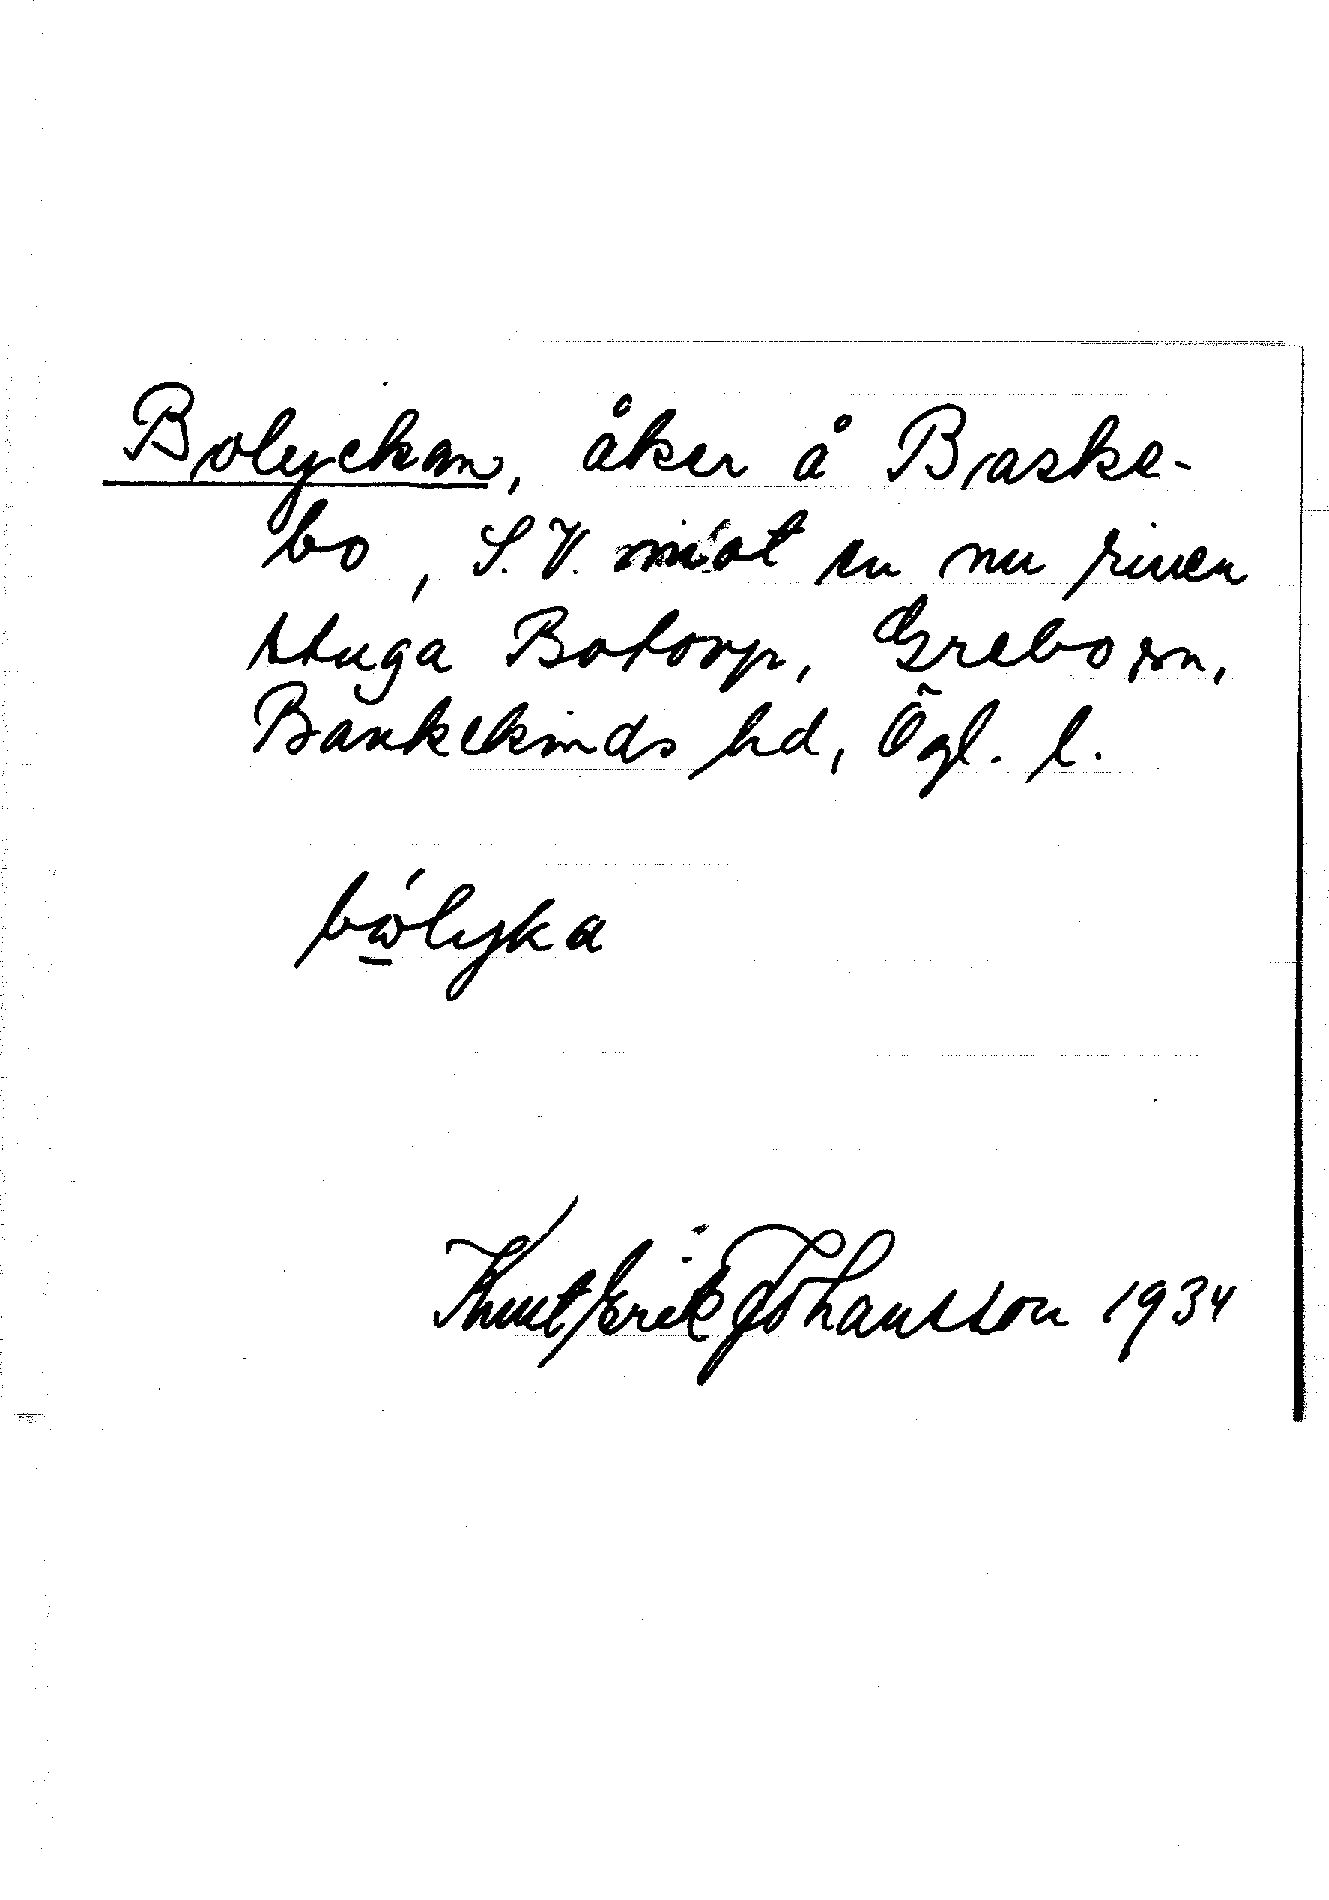 Bolyckan, åker å Baske-
bo, S.V. mot en nu riven
stuga Botorp, Grebo sn,
Bankekinds hd, Ögl. l.
bώ̲lyka
Knut Erik Johansson 1934